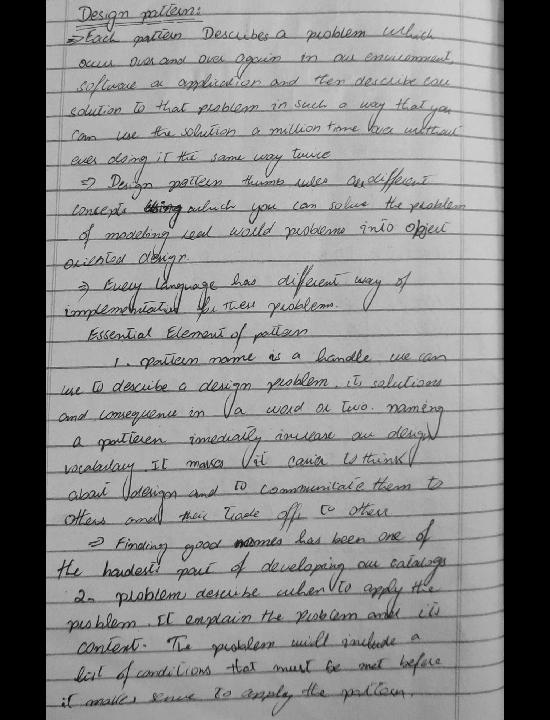 Design pattern:
⇒ Each pattern Describes a problem which
occur over and over again in our environment,
software or application and then describe core
solution to that problem in such a way that you
can use the solution a million time over without
ever doing it the same way twice
⇒ Design pattern thumb rules or different
concepts using which you can solve the problem
of modeling real world problems into object
oriented design.
⇒ Every language has different way of
implementation for these problems.
Essential Element of pattern
1. pattern name is a handle we can
use to describe a design problem, its solutions
and consequence in a word or two. naming
a patteren imediatly increase our design
vocabulary It makes it easier to think
about design and to communicate them to
others and their trade offs to others
⇒ Finding good names has been one of
the hardest part of developing our catalogs
2- problem describe when to apply the
problem. It explain the problem and its
content. The problem will include a
list of conditions that must be met before
it makes sense to apply the pattern.